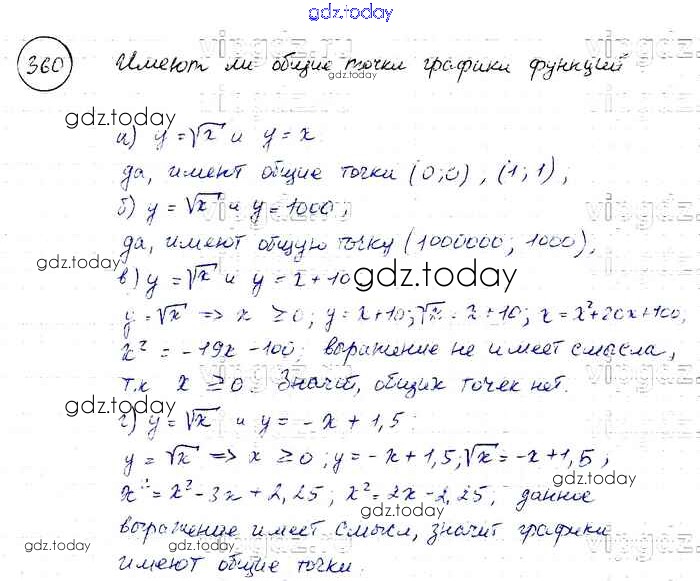 gdz.today
360 Имеют ли общие точки графики функций
gdz.today
а) y = √x и y = x
да, имеют общие точки (0;0), (1;1);
б) y = √x и y = 1000;
да, имеют общую точку (1000000; 1000),
gdz.today
в) y = √x и y = x + 10
gdz.today
y = √x => x ≥ 0; y = x + 10; √x = x + 10; x = x² + 20x + 100,
x² = -19x - 100; выражение не имеет смысла,
т.к x ≥ 0. Значит, общих точек нет.
gdz.today
г) y = √x и y = -x + 1,5;
y = √x => x ≥ 0; y = -x + 1,5; √x = -x + 1,5;
x = x² - 3x + 2,25; x² = 2x - 2,25; данное
выражение имеет смысл, значит графики
gdz.today gdz.today gdz.today
имеют общие точки.